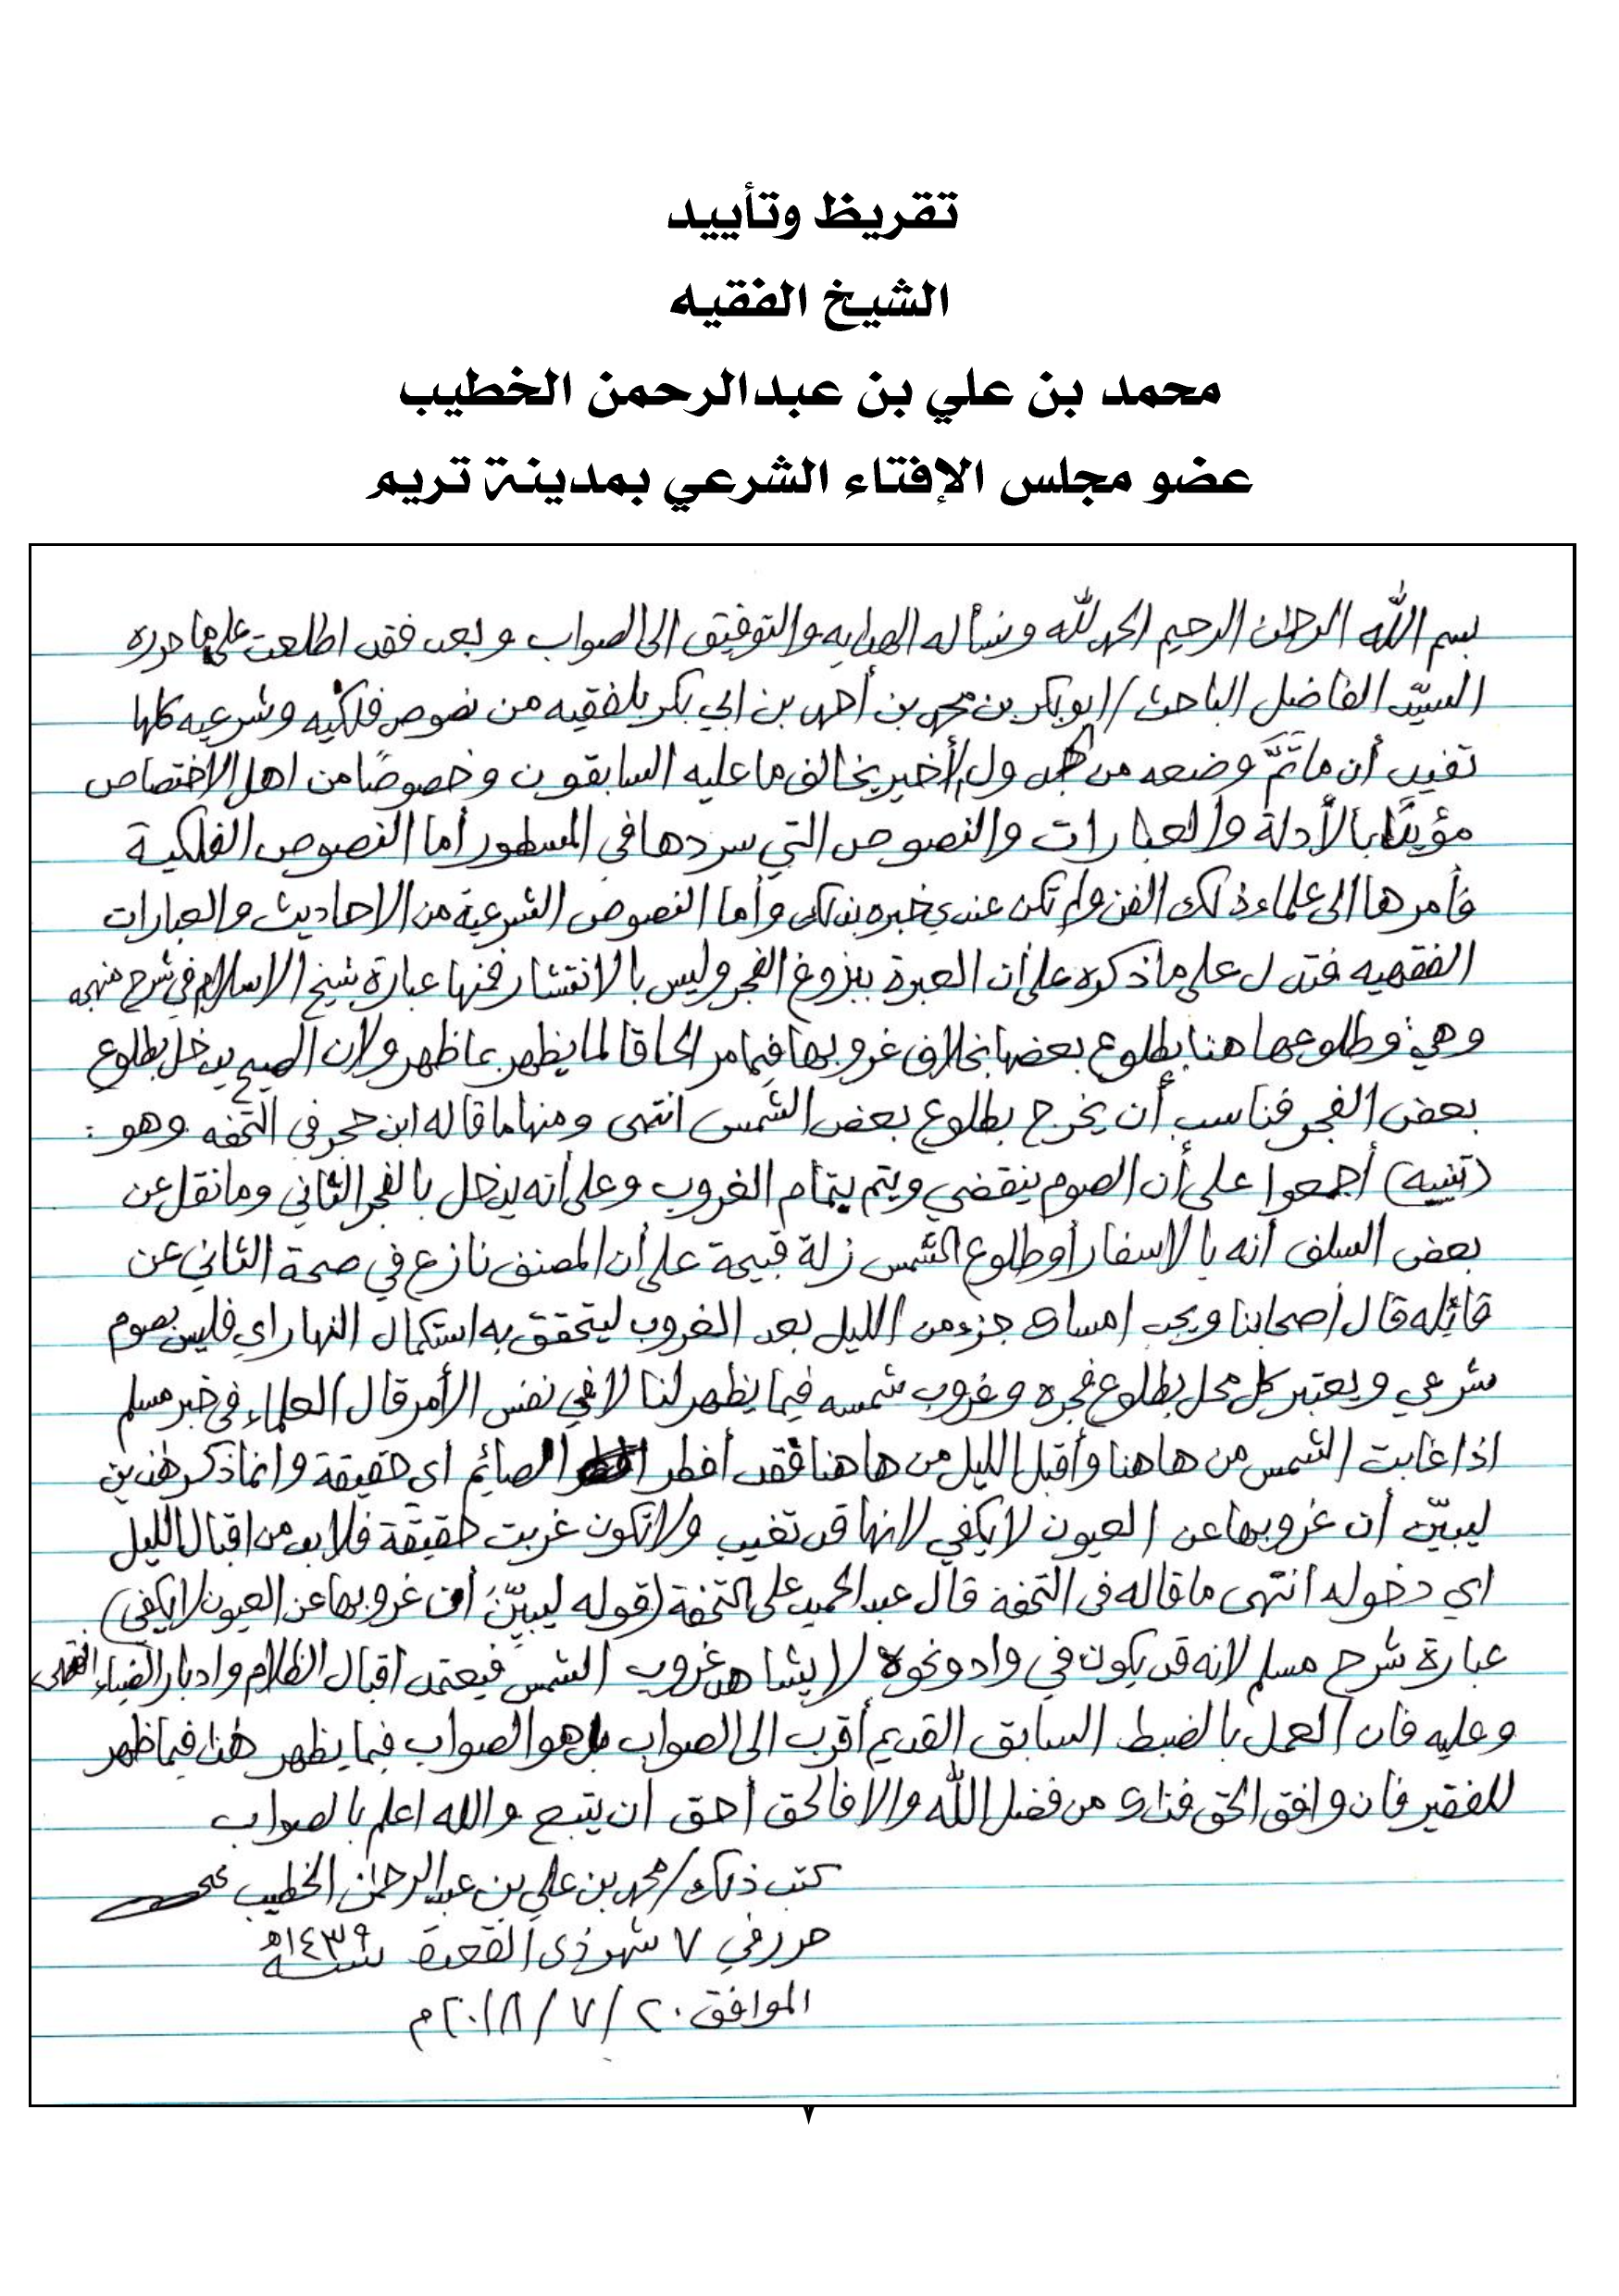 تقريظ وتأييد
الشيخ الفقيه
محمد بن علي بن عبدالرحمن الخطيب
عضو مجلس الإفتاء الشرعي بمدينة تريم
بسم الله الرحمن الرحيم الحمد لله ونسأله الهدايه والتوفيق الى الصواب وبعد فقد اطلعت على ما حرره
السيّد الفاضل الباحث / ابوبكر بن محمد بن أحمد بن ابي بكر بلفقيه من نصوص فلكيه وشرعيه كلها
تفيد أن ماتَمَّ وضعه من جدول أخير يخالف ما عليه السابقون وخصوصًا من اهل الاختصاص
مؤيدًا بالأدلة والعبارات والنصوص التي سردها في المسطور أما النصوص الفلكية
فأمرها الى علماء ذلك الفن ولم تكن عندي خبره بذلك وأما النصوص الشرعية من الاحاديث والعبارات
الفقهيه فتدل على ما ذكره على أن العبرة ببزوغ الفجر وليس بالانتشار فمنها عبارة شيخ الاسلام في شرح منهجه
وهي : وطلوعها هنا بطلوع بعضها بخلاف غروبها فيما مر الحاقا لما يظهر بما ظهر ولان الصبح يدخل بطلوع
بعض الفجر فناسب أن يخرج بطلوع بعض الشمس انتهى ومنها ما قاله ابن حجر في التحفه وهو :
(تنبيه) أجمعوا على أن الصوم ينقضي ويتم بتمام الغروب وعلى أنه يدخل بالفجر الثاني وما نقل عن
بعض السلف أنه بالاسفار أو طلوع الشمس زلة قبيحة على أن المصنف نازع في صحة الثاني عن
قائله قال أصحابنا ويجب امساك جزء من الليل بعد الغروب ليتحقق به استكمال النهار اي فليس بصوم
شرعي ويعتبر كل محل بطلوع فجره وغروب شمسه فيما يظهر لنا لا في نفس الأمر قال العلماء في خبر مسلم
اذا غابت الشمس من هاهنا وأقبل الليل من هاهنا فقد أفطر الصائم اي حقيقة وانما ذكر هذين
ليبيّن أن غروبها عن العيون لا يكفي لانها قد تغيب ولا تكون غربت حقيقة فلا بد من اقبال الليل
اي دخوله انتهى ما قاله في التحفة قال عبد الحميد على التحفة (قوله ليبيّن أن غروبها عن العيون لا يكفي)
عبارة شرح مسلم لانه قد يكون في واد ونحوه لا يشاهد غروب الشمس فيعتمد اقبال الظلام وادبار الضياء انتهى
وعليه فان العمل بالضبط السابق القديم أقرب الى الصواب بل هو الصواب فيما يظهر هذا فيما ظهر
للفقير فان وافق الحق فذاك من فضل الله والا فالحق أحق ان يتبع والله اعلم بالصواب
كتب ذلك / محمد بن علي بن عبدالرحمن الخطيب
حرر في ٧ شهر ذي القعدة سنة ١٤٣٩ه
الموافق ٢٠ / ٧ / ٢٠١٨م
٧